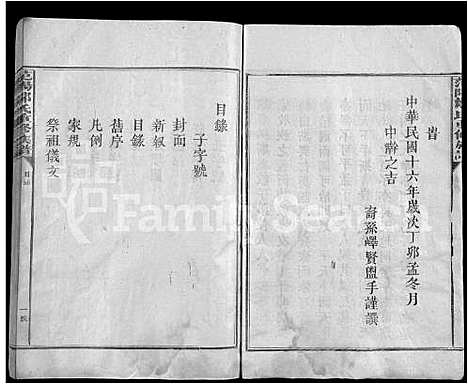 時
中華民國十六年歲次丁卯孟冬月
中澣之吉
裔孫嶧賢盥手謹譔
目錄
子字號
封面
新叙
目錄
舊序
凡例
家規
祭祖儀文
FamilySearch